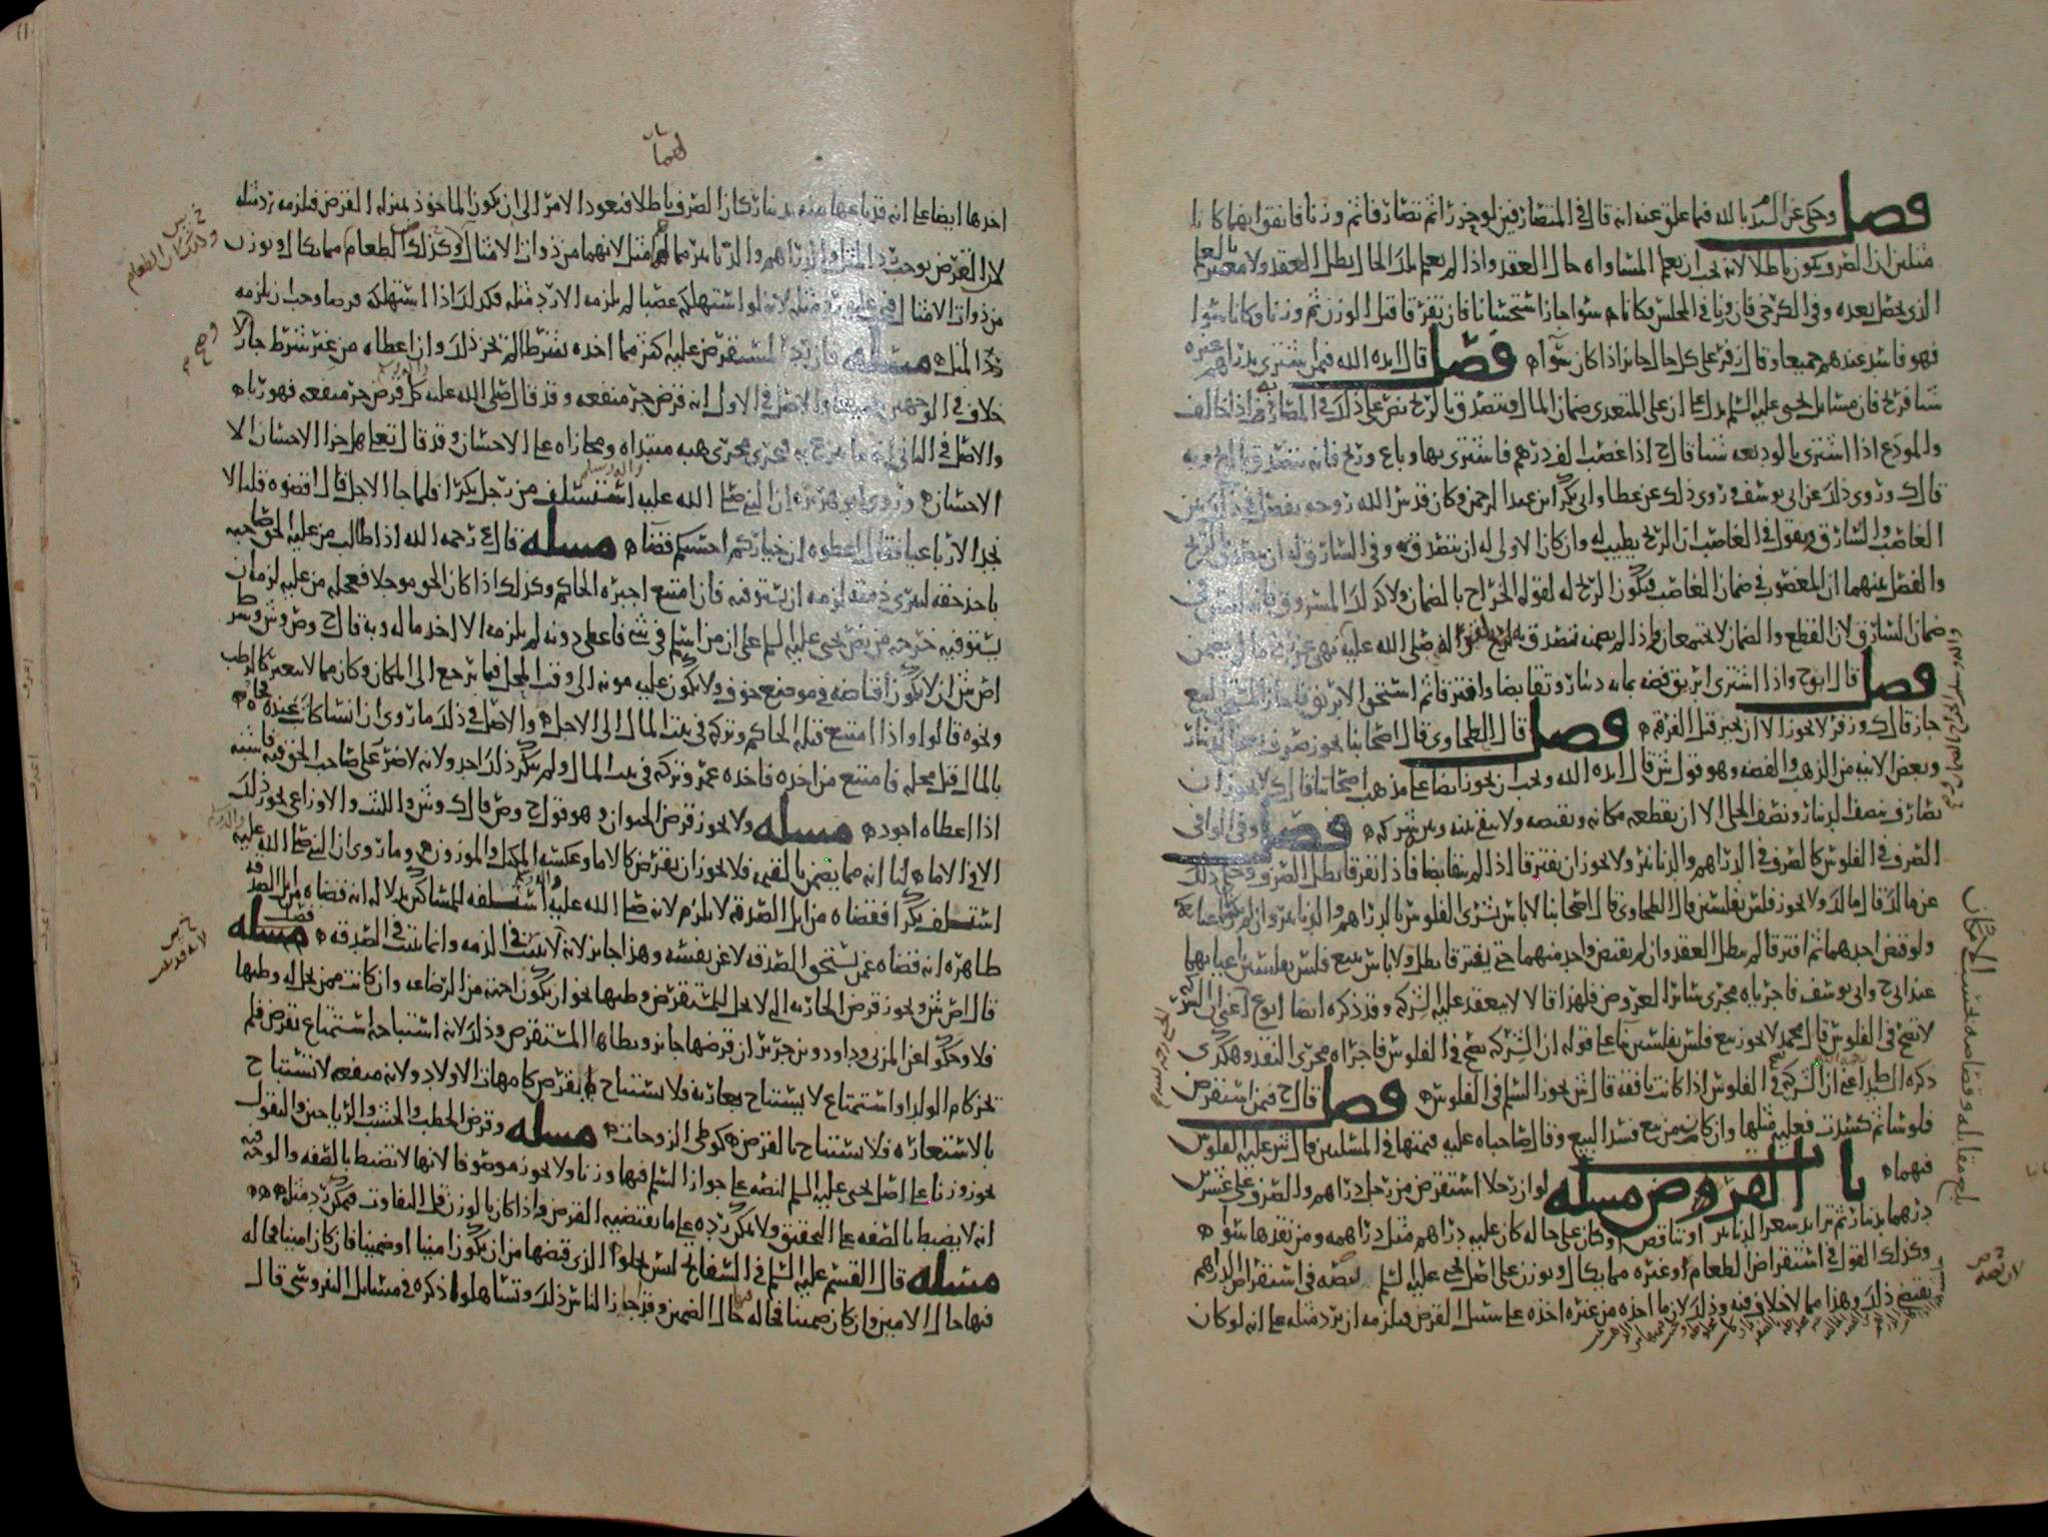 فصل وحكي عن السيد بالله فيما علق عنه انه قال في المتصارفين لو جزراثم تصارفا ثم وزنا فاتفق ايهما كانا
مثلين ان الصرف يكون باطلا لانه يجب ان يعلم المساواه حال العقد واذا لم يعلم بذلك الحال بطل العقد ولا معتبر بالعلم
الذي يحصل بعده وفي الكرخي فان وزنا في المجلس فكانا سوا جاز استحسانا فان تفرقا قبل الوزن ثم وزنا وكانا سوا
فهو فاسد عندهم جميعا وقال زفر على كل حال جائز اذا كان سوآ فصل قال ايده الله فيمن اشترى بدراهم غيره
شيا فربح فان مسائل يحيى عليه السلم تدل على ان على المتعدي ضمان المال ويتصدق بالربح نص على ذلك في المضارب اذا خالف
والمودع اذا اشترى بالوديعه شيا قال ح اذا غصب الف درهم فاشترى بها وباع وربح فانه يتصدق بالربح وبه
قال ك وروي ذلك عن ابي يوسف وروي ذلك عن عطا وابي بكر بن عبد الرحمن وكان قدس الله روحه يفصل في ذلك بين
الغاصب والسارق ويقول في الغاصب ان الربح يطيب له وان كان الاولى له ان يتصدق به وفي السارق له ان يتصدق بالربح
والفصل بينهما ان المغصوب في ضمان الغاصب فيكون الربح له لقوله الخراج بالضمان ولا كذلك المسروق فانه ليس في
ضمان السارق لان القطع والضمان لا يجتمعان واذا لم يضمنه تصدق بالربح لانه صلى الله عليه نهى عن ربح ما لم يضمن
فصل قال ابو ح واذا اشترى ابريق فضه بمايه دينار وتقابضا وافترقا ثم استحق الابريق فاجاز المستحق البيع
جاز قال ك وزفر لا يجوز الا ان يجيز قبل الفرقه فصل قال الطحاوي قال اصحابنا يجوز صرف بعض الدينار
وبعض الانيه من الذهب والفضه وهو قول ش قال ايده الله ويجب ان يجوز ايضا على مذهب اصحابنا قال ك لا يجوز ان
يصارف بنصف الدينار ونصف الحلي الا ان يقطعه مكانه ويقبضه ولا يبقى بينه وبين شركه فصل وفي الوافي
الصرف في الفلوس كالصرف في الدراهم والدنانير ولا يجوز ان يفترقا اذا لم يتقابضا فاذا تفرقا بطل الصرف وحكي ذلك
عن مالك قال مالك ولا يجوز فلس بفلسين قال الطحاوي قال اصحابنا لا باس بشرى الفلوس بالدراهم والدنانير وان لم
ولو قبض احدهما ثم افترقا لم يبطل العقد وان لم يقبض واحد منهما حتى يفترقا بطل ولا باس ببيع فلس بفلسين باعيانهما
عند ابي ح وابي يوسف فاجرياه مجرى سائر العروض فلهذا قالا لا ينعقد عليه الشركه وقد ذكره ايضا ابو ع اعني ان الشركه
لا تصح في الفلوس قال محمد لا يجوز بيع فلس بفلسين بنا على قوله ان الشركه تصح في الفلوس فاجراه مجرى النقد وهكذى
ذكره الطبراني ان الشركه تصح في الفلوس اذا كانت نافقه قال ش يجوز السلم في الفلوس فصل قال ح فيمن استقرض
فلوسا ثم كسدت فعليه مثلها وان كان من بيع فسد البيع وقال صاحباه عليه قيمتها في المسلين قال ش عليه الفلوس
فيهما باب القروض مسله لو ان رجلا استقرض من رجل دراهم والصرف على عشرين
درهما بدينار ثم تزايد سعر الدنانير او تناقص او كان على حاله كان عليه دراهم مثل دراهمه ومن نقدها سوآ
وكذلك القول في استقراض الطعام او غيره مما يكال او يوزن على اصل يحيى عليه السلم لنصه في استقراض الدراهم
يقتضي ذلك وهذا مما لا خلاف فيه وذلك لان ما اخذه من غيره اخذه على سبيل القرض فيلزمه ان يرد مثله على انه لو كان
اخذها ايضا على انه قد باعها منه بدينار كان الصرف باطلا فيعود الامر الى ان يكون الماخوذ بمنزله القرض فيلزمه رد مثله
لان القرض يوجب رد المثل والدراهم والدنانير مما لهما مثل لانهما من ذوات الامثال وكذلك الطعام مما يكال او يوزن
من ذوات الامثال فيجب عليه رد مثله لانه لو استهلكه غصبا لم يلزمه الا رد مثله فكذلك اذا استهلكه قرضا وجب ان يلزمه
رد المثل مسله فان رد المستقرض عليه اكثر مما اخذه بشرط لم يجز ذلك وان اعطاه من غير شرط جاز لا
خلاف في الوجهين جميعا والاصل في الاول انه قرض جر منفعه وقد قال صلى الله عليه كل قرض جر منفعه فهو ربا
والاصل في الثاني انه ما تبرع به يجري مجرى هبه مبتداه ومجازاه على الاحسان وقد قال تعلى هل جزا الاحسان الا
الاحسان وروى ابو هريره ان النبي صلى الله عليه استسلف من رجل بكرا فلما جا الاجل قال اقضوه قلنا لا
نجد الا رباعيا فقال اعطوه ان خياركم احسنكم قضا مسله قال ع رحمه الله اذا طالب من عليه الحق صاحبه
باخذ حقه لتبرى ذمته لزمه ان يستوفيه فان امتنع اجبره الحاكم وكذلك اذا كان الحق موجلا فعجله من عليه لزمه ان
يستوفيه خرجه من نص يحيى عليه السلم على ان من اسلم في شي فاعطي دونه لم يلزمه الا اخذ ماله وبه قال ح وص وش وشرط
اص ش ان لا يكون اقباضه في موضع خوف ولا يكون عليه مونه الى وقت المحل فيما يرجع الى المكان وكان مما لا يتغير كالرطب
ونحوه قالوا واذا امتنع قبله الحاكم وتركه في بيت المال الى الاجل والاصل في ذلك ما روي ان انسا كاتب عبده فجاه
بالمال قبل محله فامتنع من اخذه فاخذه عمر وتركه في بيت المال ولم ينكر ذلك احد ولانه لا ضرر على صاحب الحق فيه فاشبه
اذا اعطاه اجود مسله ولا يجوز قرض الحيوان وهو قول ح وص قال ك وش والليث والاوزاعي يجوز ذلك
الا في الاما لنا انه مما يضمن بالقيمه فلا يجوز ان يقرض كالاما وعكسه المكيل والموزون وما روي ان النبي صلى الله عليه
استسلف بكرا فقضاه من ابل الصدقه لا يلزم لانه صلى الله عليه استسلفه للمساكين بدلاله انه قضاه من ابل الصدقه
ظاهره انه قضاه عمن يستحق الصدقه لا عن نفسه وهذا جائز لانه لا يثبت في الذمه وانما يثبت في الصدقه مسله
قال اص ش ويجوز قرض الجاريه التي لا يحل للمستقرض وطيها نحو ان يكون اخته من الرضاعه وان كانت ممن يحل له وطيها
فلا وحكي عن المزني وداود وبن جرير ان قرضها جائز ويطاها المستقرض وذلك لانه استباحه استمتاع بقرض فلم
تجز كام الولد او استمتاع لا يستباح بعاريه فلا يستباح بقرض كامهات الاولاد ولانه منفعه لا تستباح
بالاستعاره فلا يستباح بالقرض كوطي الزوجات مسله وقرض الحطب والخشب والرياحين والبقول
يجوز وزنا على اصل يحيى عليه السلم لنصه على جواز السلم فيها وزنا ولا يجوز موصوفا لانها لا تضبط بالصفه والوجه فيه
انه لا يضبط بالصفه على التحقيق ولا يمكن رده على ما يقتضيه القرض واذا كان بالوزن قل التفاوت فيمكن رد مثله
مسله قال القسم عليه السلم في السفاتج ليس يخلوا الذي قبضها من ان يكون امينا او ضمينا فان كان امينا فحاله
فيها حال الامين وان كان ضمينا فحاله حال الضمين وقد اجاز الناس ذلك وتساهلوا ذكره في مسائل النيروسي قال